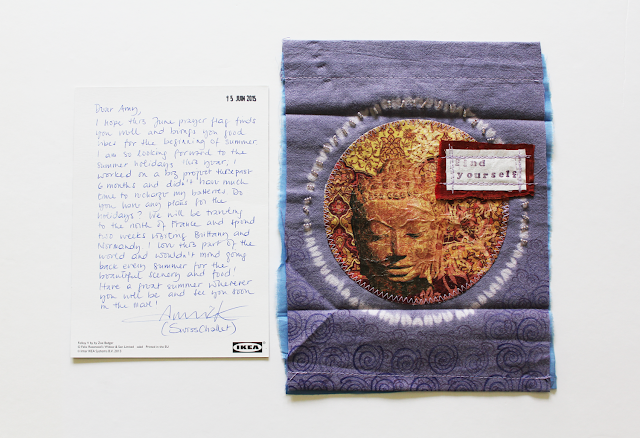 15 JUIN 2015
Dear Amy,
I hope this June prayer flag finds
you well and brings you good
vibes for the beginning of summer.
I am so looking forward to the
summer holidays this year. I
worked on a big project the past
6 months and didn't have much
time to recharge my batteries. Do
you have any plans for the
holidays? We will be traveling
to the north of France and spend
two weeks visiting Brittany and
Normandy. I love this part of the
world and wouldn't mind going
back every summer for the
beautiful scenery and food!
Have a great summer wherever
you will be and see you soon
in the
(SwissChalet)
IKEA
find
yourself